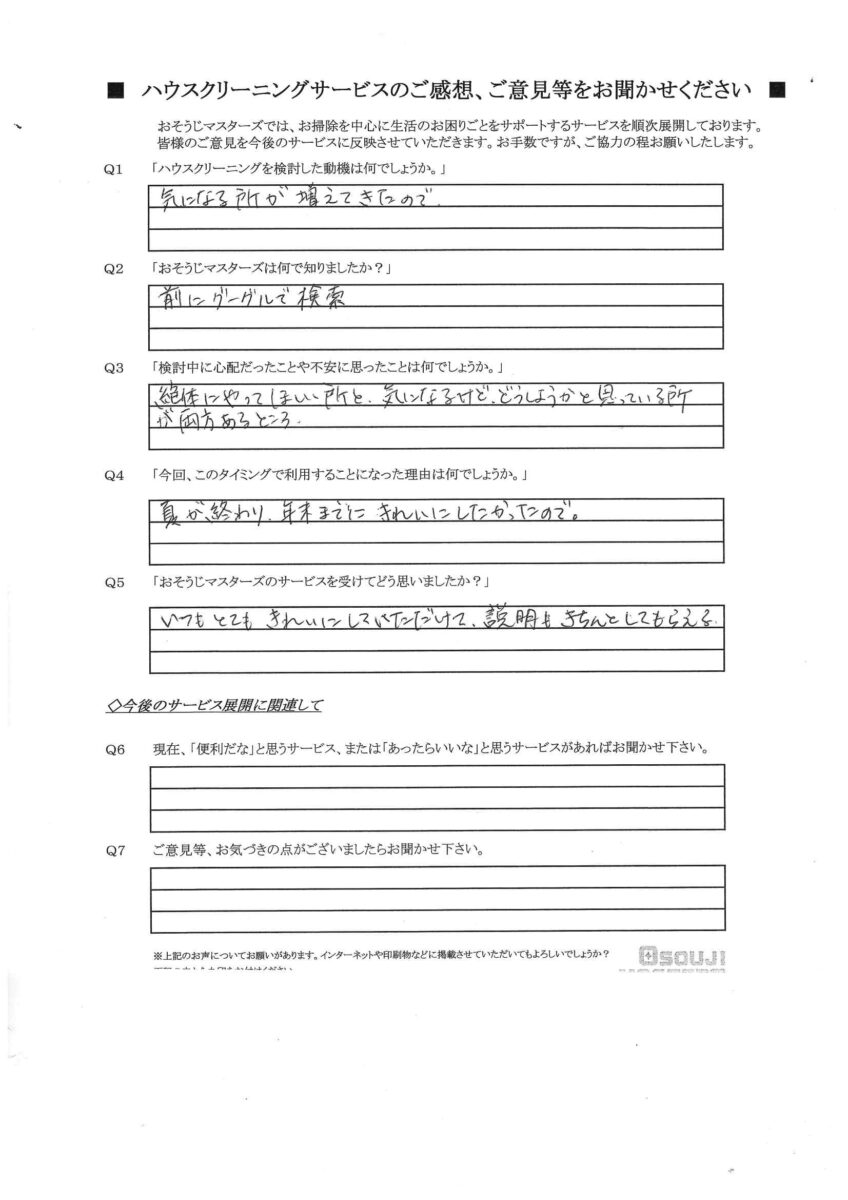 ■ ハウスクリーニングサービスのご感想、ご意見等をお聞かせください ■
おそうじマスターズでは、お掃除を中心に生活のお困りごとをサポートするサービスを順次展開しております。
皆様のご意見を今後のサービスに反映させていただきます。お手数ですが、ご協力の程お願いしたします。
Q1 「ハウスクリーニングを検討した動機は何でしょうか。」
気になる所が増えてきたので.
Q2 「おそうじマスターズは何で知りましたか？」
前にグーグルで検索
Q3 「検討中に心配だったことや不安に思ったことは何でしょうか。」
絶体にやってほしい所と、気になるけど、どうしようかと思っている所
が両方あるところ.
Q4 「今回、このタイミングで利用することになった理由は何でしょうか。」
夏が終わり、年末までに きれいにしたかったので。
Q5 「おそうじマスターズのサービスを受けてどう思いましたか？」
いつもとても きれいにしていただけて、説明もきちんとしてもらえる.
◇今後のサービス展開に関連して
Q6 現在、「便利だな」と思うサービス、または「あったらいいな」と思うサービスがあればお聞かせ下さい。
Q7 ご意見等、お気づきの点がございましたらお聞かせ下さい。
※上記のお声についてお願いがあります。インターネットや印刷物などに掲載させていただいてもよろしいでしょうか？
OSOUJI